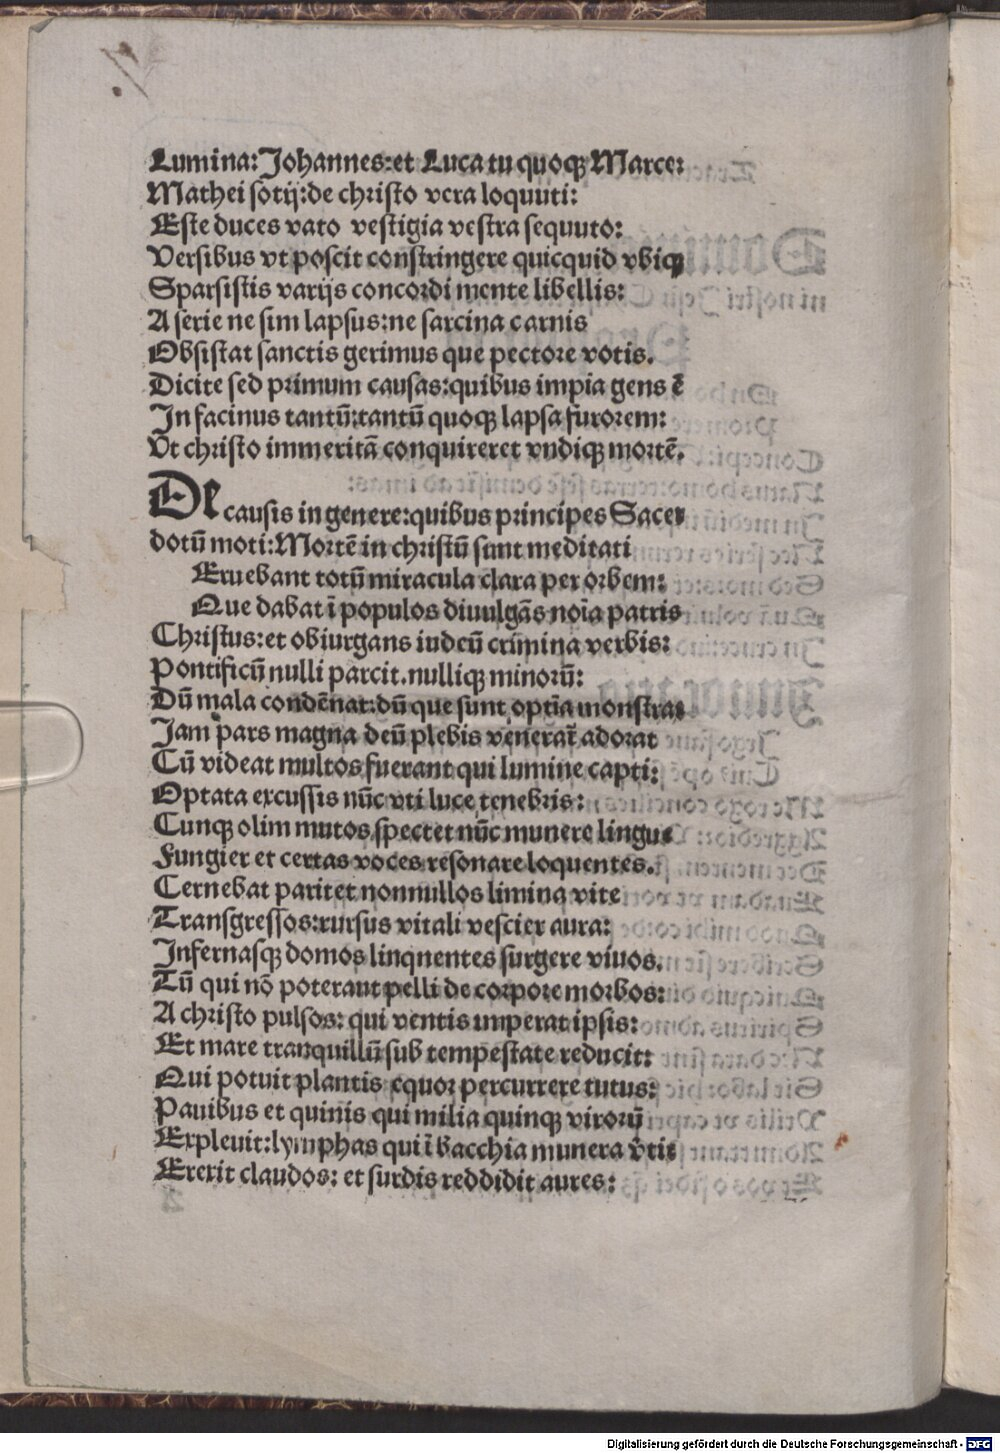 Lumina: Johannes: et Luca tu quoqꝫ Marce:
Mathei sotij: de christo vera loquuti:
Este duces vato vestigia vestra sequuto:
Versibus vt poscit constringere quicquid vbiqꝫ
Sparsistis varijs concordi mente libellis:
A serie ne sim lapsus: ne sarcina carnis
Obsistat sanctis gerimus que pectore votis.
Dicite sed primum causas: quibus impia gens ē
In facinus tantū: tantū quoqꝫ lapsa furorem:
Vt christo immeritā conquireret vndiqꝫ mortē.
De causis in genere: quibus principes Sacer
dotū moti: Mortē in christū sunt meditati
Eruebant totū miracula clara per orbem:
Que dabat ī populos diuulgās noīa patris
Christus: et obiurgans iudeū crimina verbis:
Pontificū nulli parcit. nulliqꝫ minorū:
Dū mala condēnat: dū que sunt optīa monstrat
Jam pars magna deū plebis venerat̄ adorat
Cū videat multos fuerant qui lumine capti:
Optata excussis nūc vti luce tenebris:
Cunqꝫ olim mutos spectet nūc munere lingue
Fungier et certas voces resonare loquentes.
Cernebat paritet nonnullos limina vite
Transgressos: rursus vitali vescier aura:
Infernasqꝫ domos linqnentes surgere viuos.
Tū qui nō poteraut pelli de corpore morbos:
A christo pulsos: qui ventis imperat ipsis:
Et mare tranquillū sub tempestate reducit:
Qui potuit plantis equor percurrere tutus:
Panibus et quinis qui milia quinqꝫ virorū
Expleuit: lymphas qui ī bacchia munera v̄tit
Erexit claudos: et surdis reddidit aures:
Digitalisierung gefördert durch die Deutsche Forschungsgemeinschaft - DFG